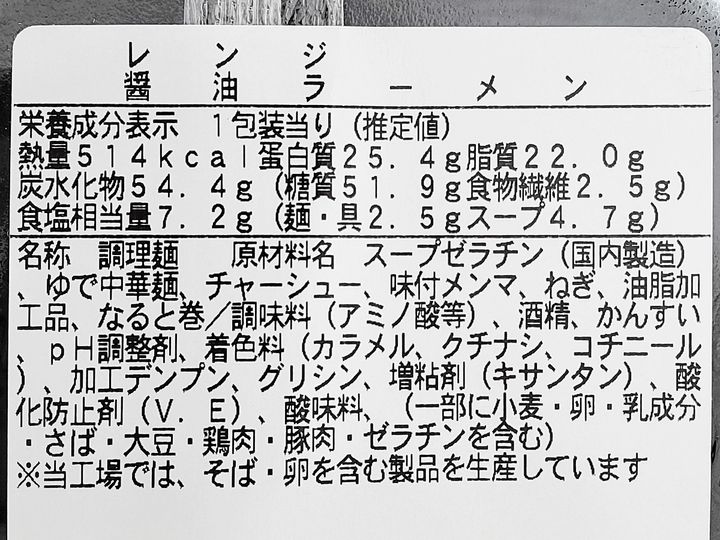 レンジ
醤油ラーメン
栄養成分表示　１包装当り（推定値）
熱量５１４ｋｃａｌ蛋白質２５．４ｇ脂質２２．０ｇ
炭水化物５４．４ｇ（糖質５１．９ｇ食物繊維２．５ｇ）
食塩相当量７．２ｇ（麺・具２．５ｇスープ４．７ｇ）
名称　調理麺　　原材料名　スープゼラチン（国内製造）
、ゆで中華麺、チャーシュー、味付メンマ、ねぎ、油脂加
工品、なると巻／調味料（アミノ酸等）、酒精、かんすい
、ｐＨ調整剤、着色料（カラメル、クチナシ、コチニール
）、加工デンプン、グリシン、増粘剤（キサンタン）、酸
化防止剤（Ｖ．Ｅ）、酸味料、（一部に小麦・卵・乳成分
・さば・大豆・鶏肉・豚肉・ゼラチンを含む）
※当工場では、そば・卵を含む製品を生産しています